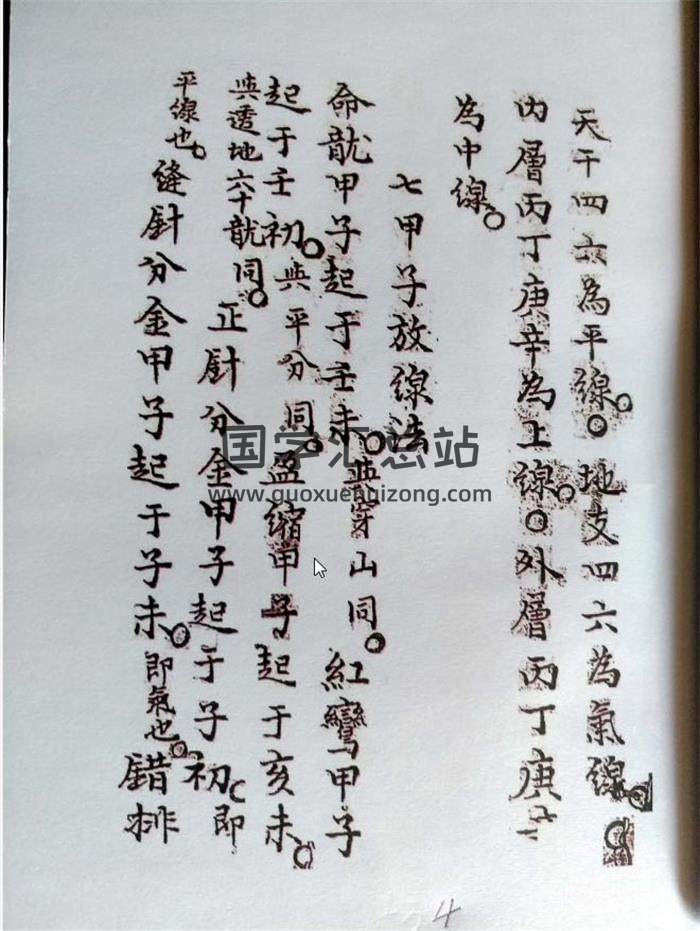 天干四六為平線。○地支四六為氣線。○
內層丙丁庚辛為上線。○外層丙丁庚
為中線。
七甲子放線法
命龍甲子起于壬未。與穿山同。紅鸞甲子
起于壬初。與平分同。盈縮甲子起于亥未。
與透地六十龍同。正針分金甲子起于子初。即
平線也。縫針分金甲子起于子未。即氣也。錯排
4
国学汇总站
www.guoxuehuizong.com